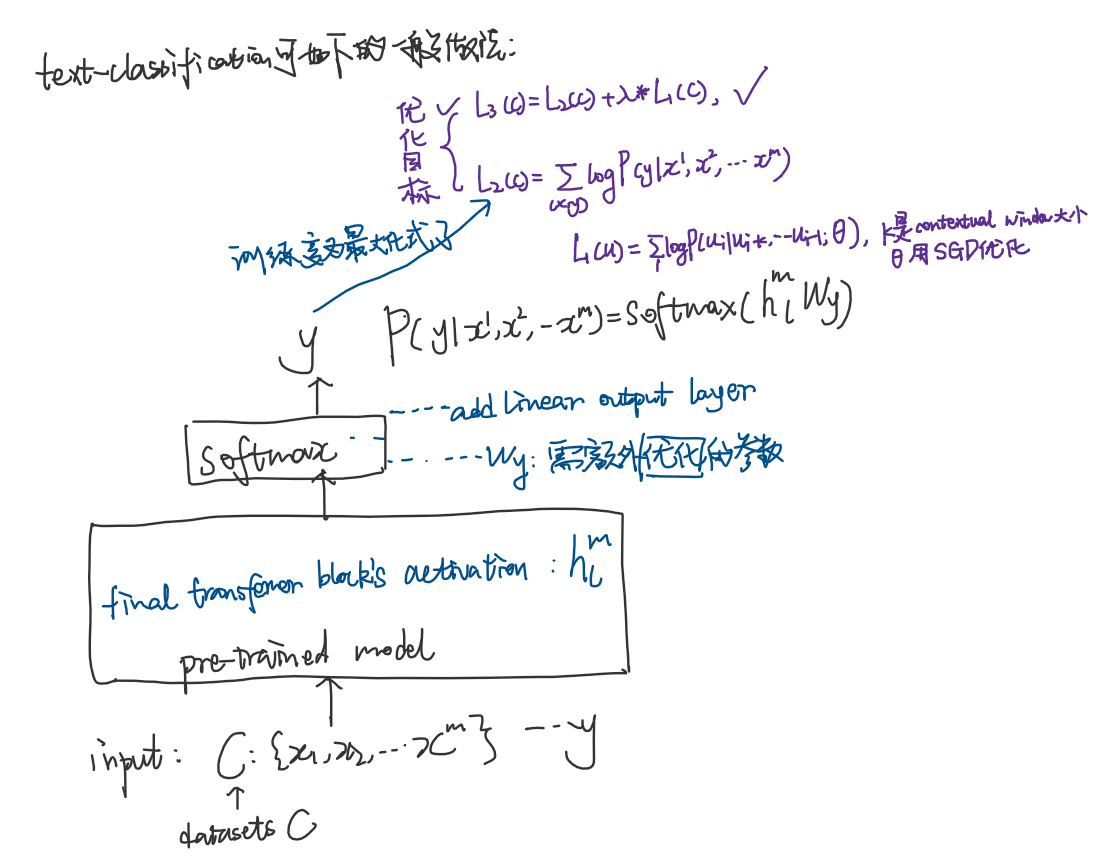 text-classification可如下的一般做法:
优化目标
L₃(C)=L₂(C)+λ*L₁(C),
L₂(C)=∑(x,y) logP(y|x¹,x²,…xᵐ)
训练变为最大化式子
L₁(u)=∑ᵢlogP(uᵢ|uᵢ₋ₖ,…uᵢ₋₁;θ), k是contextual window大小
θ用SGD优化
y P(y|x¹,x²,…xᵐ)=softmax(hₗᵐWy)
add linear output layer
softmax
Wy: 需额外优化的参数
final transfomer block's activation : hₗᵐ
pre-trained model
input: C:{x₁,x₂,…xᵐ} …y
datasets C